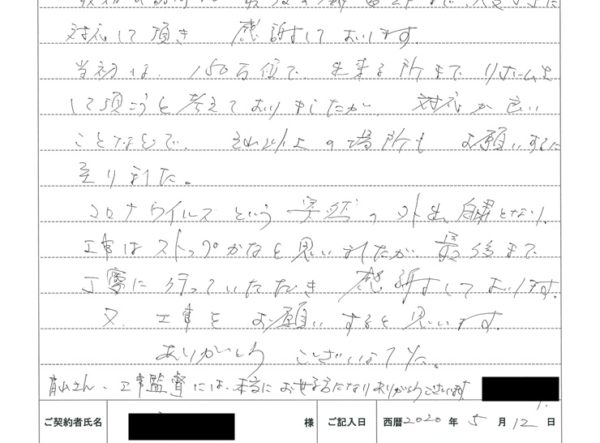 対応して頂き 感謝しております。
当初は、150万位で 出来る所まで リホームを
して頂こうと考えておりましたが 対応が良い
ことなどで、それ以上の場所も お願いするに
至りました。
コロナウイルスという 突然の外出自粛となり、
工事はストップかなと思いましたが 最後まで
丁寧に行っていただき 感謝しております。
又、工事を お願いすると思います。
ありがとう ございました。
青山さん、工事監督には、本当にお世話になりありがとうございます
ご契約者氏名 様 ご記入日 西暦 2020 年 5 月 12 日